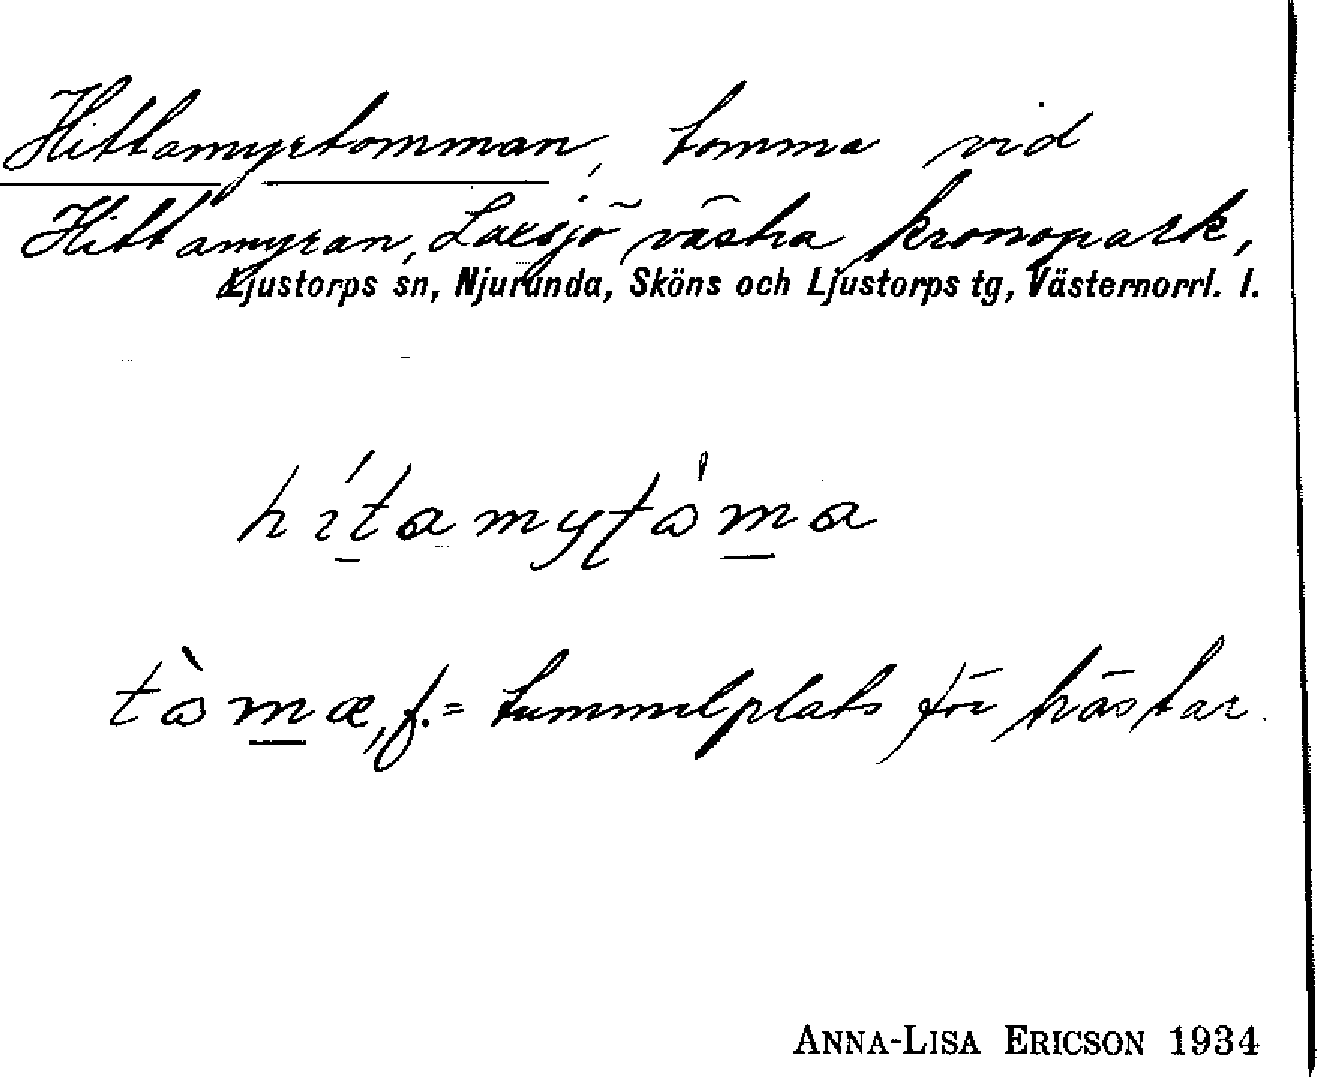 Hittamyrtomman, tomma vid
Hittamyran, Laxsjö västra kronopark,
Ljustorps sn, Njurunda, Sköns och Ljustorps tg, Västernorrl. l.
hítamytòma
tòmæ, f. = tummelplats för hästar.
ANNA-LISA ERICSON 1934